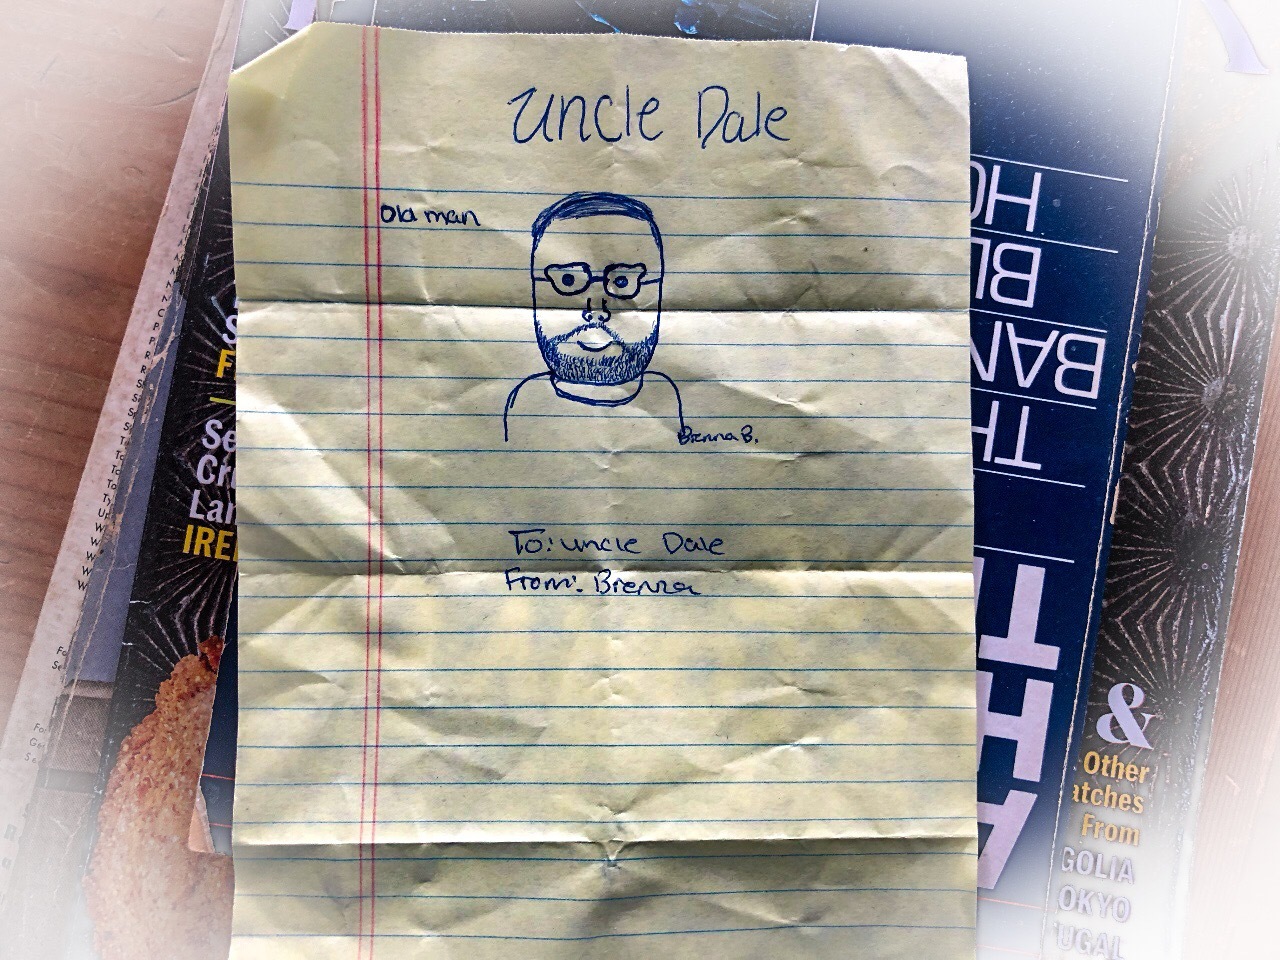 Uncle Dale
old man
Brenna B.
To: uncle Dale
From: Brenna
HO
BL
BAN
TH
TH
&
Other
atches
From
GOLIA
OKYO
UGAL
S
F
Se
Cr
Lan
IRE